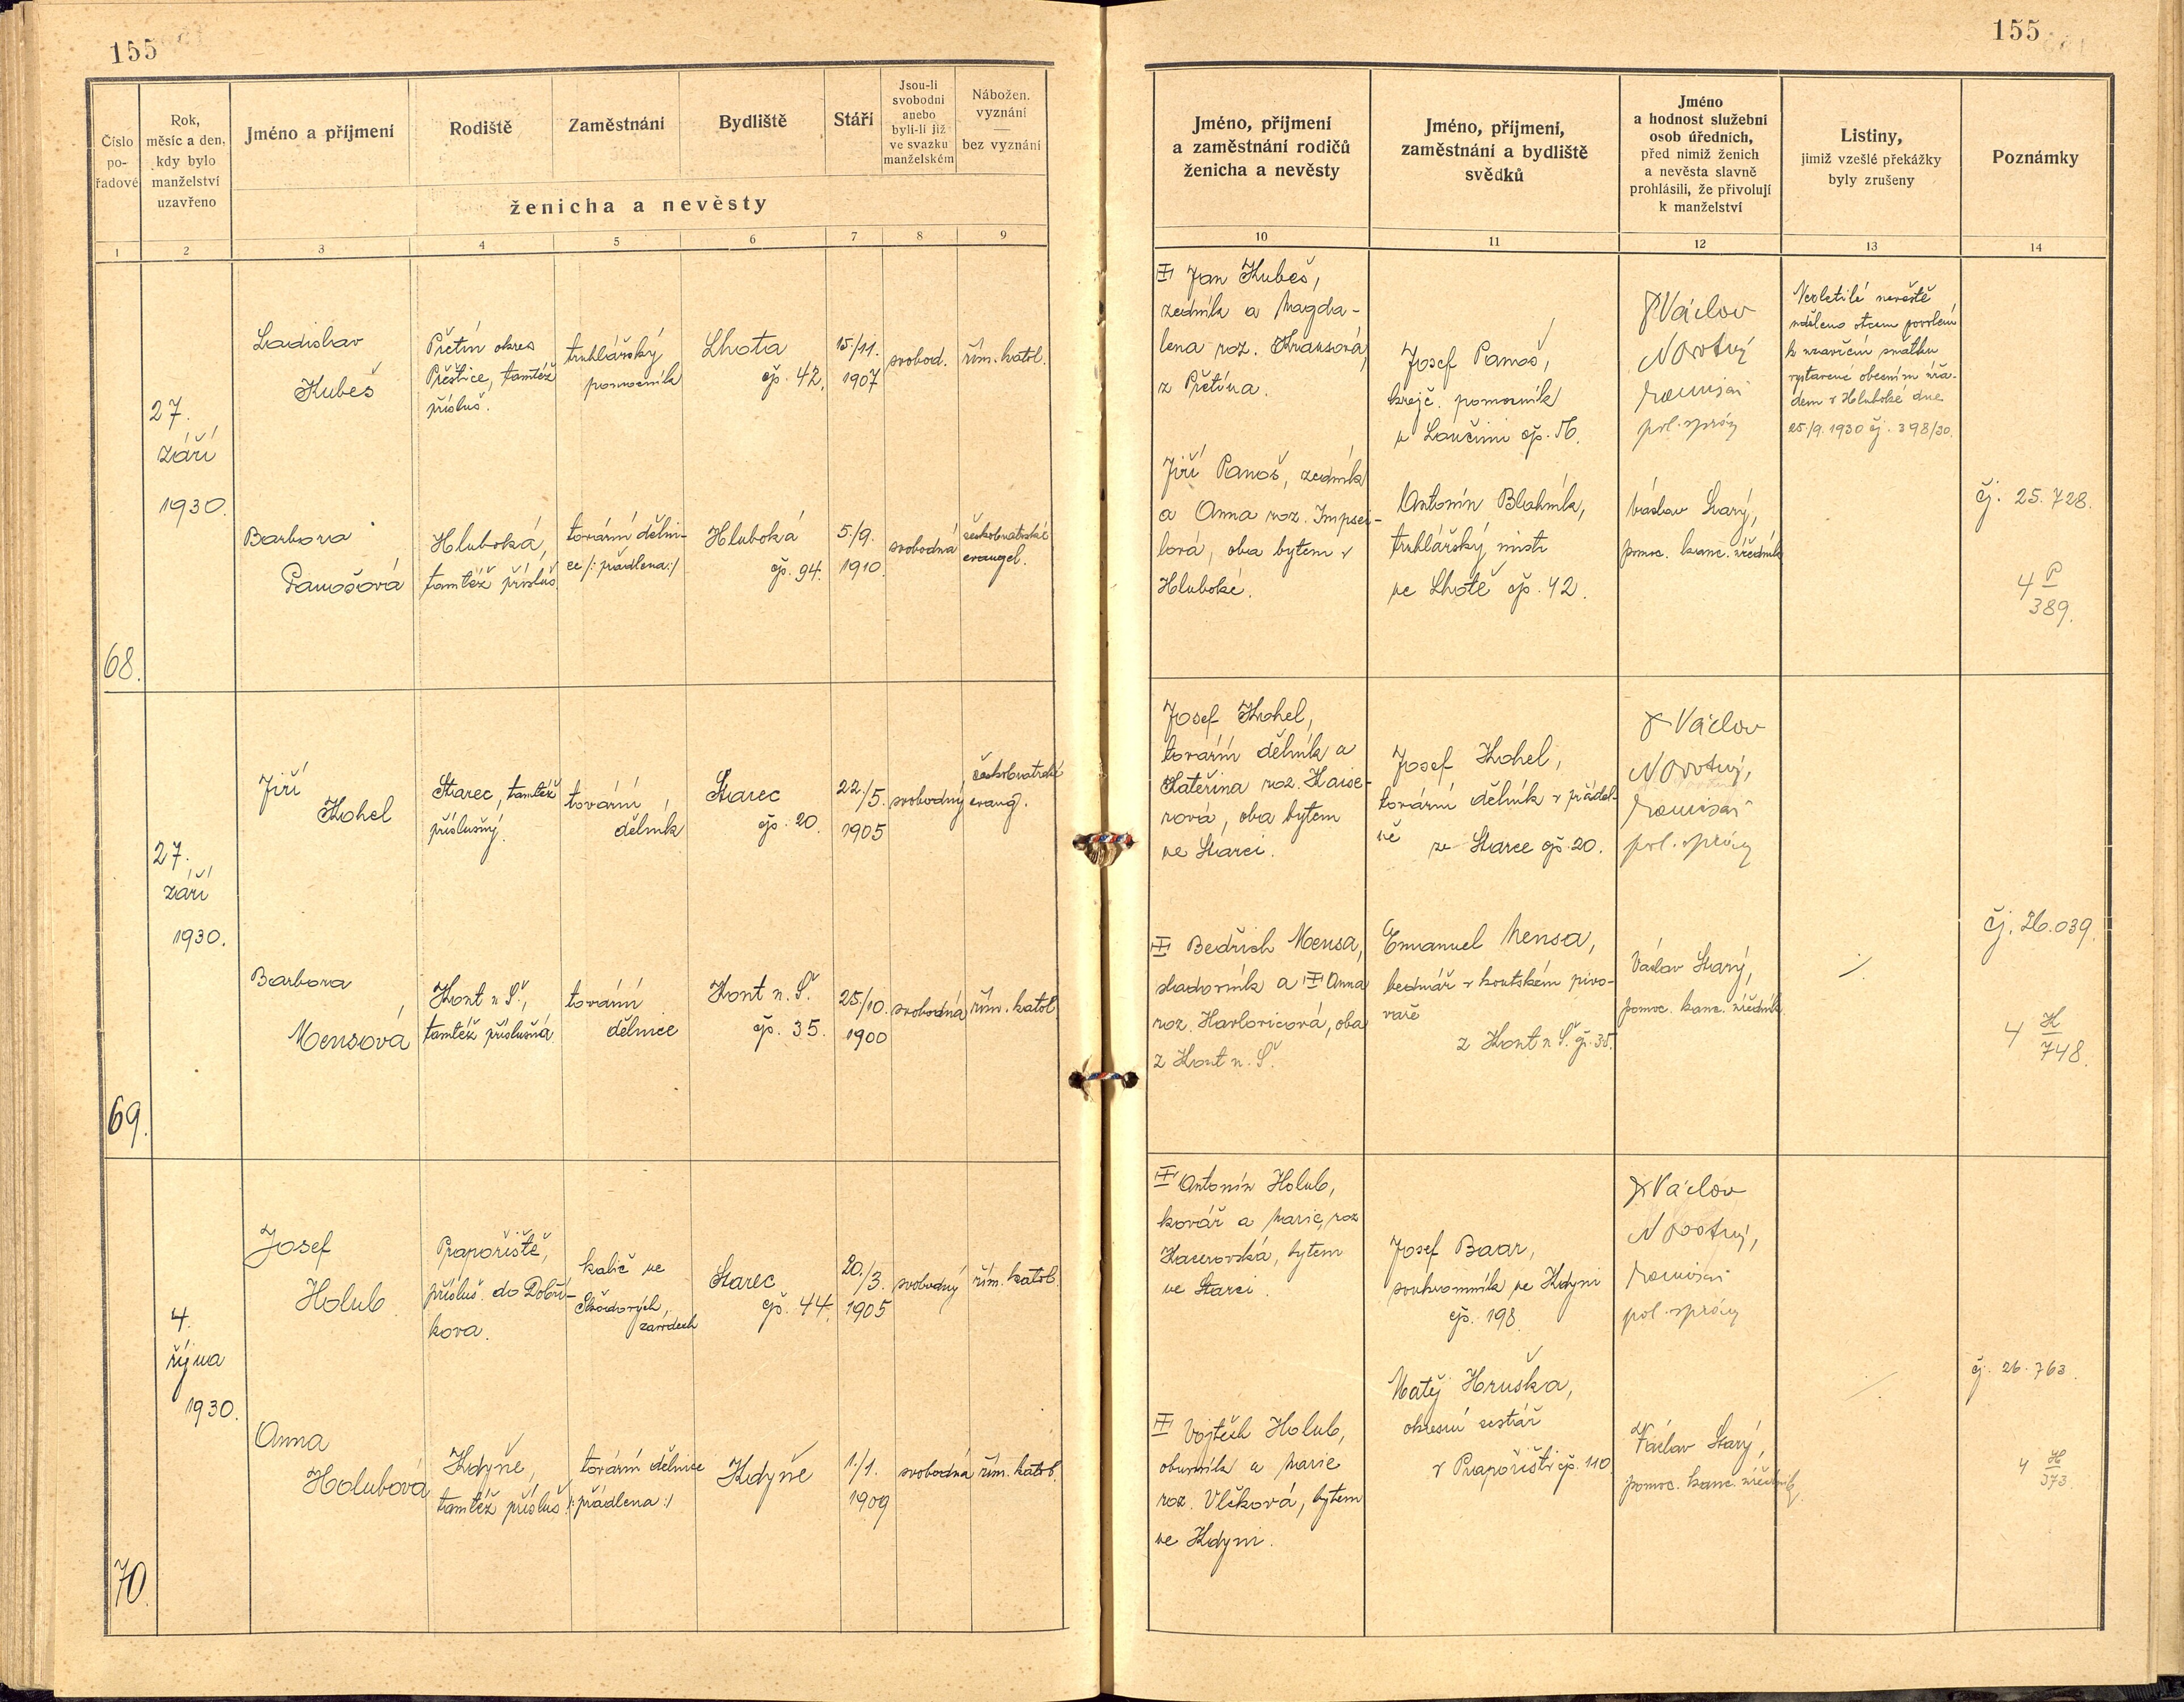 155
155
Číslo
po-
řadové
Rok,
měsíc a den,
kdy bylo
manželství
uzavřeno
Jméno a příjmení
Rodiště
Zaměstnání
Bydliště
Stáří
Jsou-li
svobodni
anebo
byli-li již
ve svazku
manželském
Nábožen.
vyznání
—
bez vyznání
ženicha a nevěsty
1
2
3
4
5
6
7
8
9
Jméno, příjmení
a zaměstnání rodičů
ženicha a nevěsty
Jméno, příjmení,
zaměstnání a bydliště
svědků
Jméno
a hodnost služební
osob úředních,
před nimiž ženich
a nevěsta slavně
prohlásili, že přivolují
k manželství
Listiny,
jimiž vzešlé překážky
byly zrušeny
Poznámky
10
11
12
13
14
68.
27.
září
1930.
Ladislav
Kubeš
Přetín okres
Přeštice, tamtéž
přísluš.
truhlářský
pomocník
Lhota
čp. 42.
15./11.
1907
svobod.
řím. katol.
Barbora
Panošová
Hluboká,
tamtéž přísluš.
tovární dělni-
ce /: přádlena :/
Hluboká
čp. 94.
5./9.
1910
svobodná
českobratrské
evangel.
Jan Kubeš,
zedník a Magda-
lena roz. Krausová,
z Přetína.
Jiří Panoš, zedník
a Anna roz. Impsei-
lová, oba bytem v
Hluboké.
Josef Panoš,
krejč. pomocník
v Loučimi čp. 56.
Antonín Blahník,
truhlářský mistr
ve Lhotě čp. 42.
Václav
Novotný
komisař
pol. správy
Václav Starý,
pomoc. kanc. úředník
Nezletilé nevěstě
uděleno otcem povolení
k uzavření sňatku
vystavené obecním úřa-
dem v Hluboké dne
25/9. 1930 čj. 398/30.
čj. 25.728.
4 P
389.
69.
27.
září
1930.
Jiří
Kohel
Starec, tamtéž
příslušný.
tovární
dělník
Starec
čp. 20.
22./5.
1905
svobodný
českobratrské
evang.
Barbora
Mensová
Kout n. Š.,
tamtéž příslušná
tovární
dělnice
Kout n. Š.
čp. 35.
25/10.
1900
svobodná
řím. katol.
Josef Kohel,
tovární dělník a
Kateřina roz. Kaise-
rová, oba bytem
ve Starci.
Bedřich Mensa,
sladovník a Anna
roz. Havlovicová, oba
z Kout n. Š.
Josef Kohel,
tovární dělník v přádel-
ně
ze Starce čp. 20.
Emanuel Mensa,
bednář v koutském pivo-
vaře
z Kout n. Š. čp. 35.
Václav
Novotný,
komisař
pol. správy
Václav Starý,
pomoc. kanc. úředník
čj. 26.039.
4 H
748.
70.
4.
října
1930.
Josef
Holub
Prapořiště,
přísluš. do Dobří-
kova.
kalič ve
Škodových
závodech
Starec
čp. 44.
20./3.
1905
svobodný
řím. katol.
Anna
Holubová
Kdyně,
tamtéž přísluš.
tovární dělnice
/: přádlena :/
Kdyně
1./1.
1909
svobodná
řím. katol.
Antonín Holub,
kovář a Marie, roz
Kacerovská, bytem
ve Starci.
Vojtěch Holub,
obuvník a Marie
roz. Vlčková, bytem
ve Kdyni.
Josef Baar,
soukromník ve Kdyni
čp. 198.
Matěj Hruška,
okresní cestář
v Prapořišti čp. 110.
Václav
Novotný,
komisař
pol. správy
Václav Starý,
pomoc. kanc. úředník
čj. 26.763.
4 H
373.